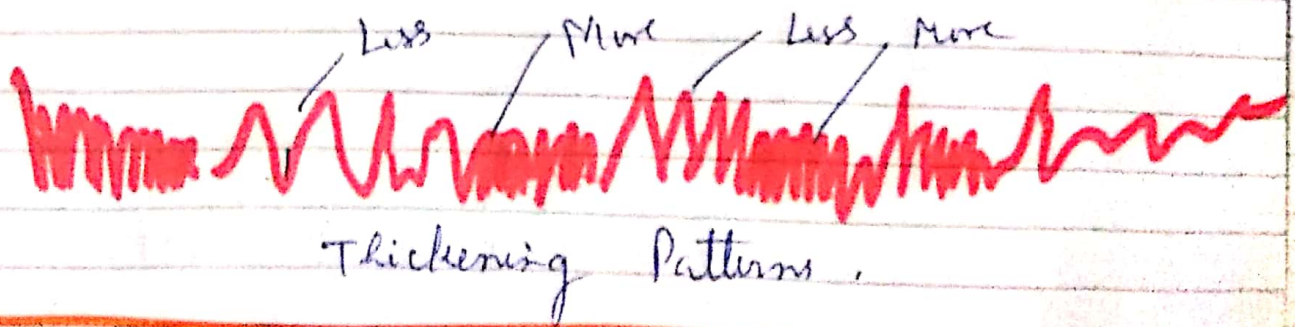 Less More Less More
Thickening Patterns.